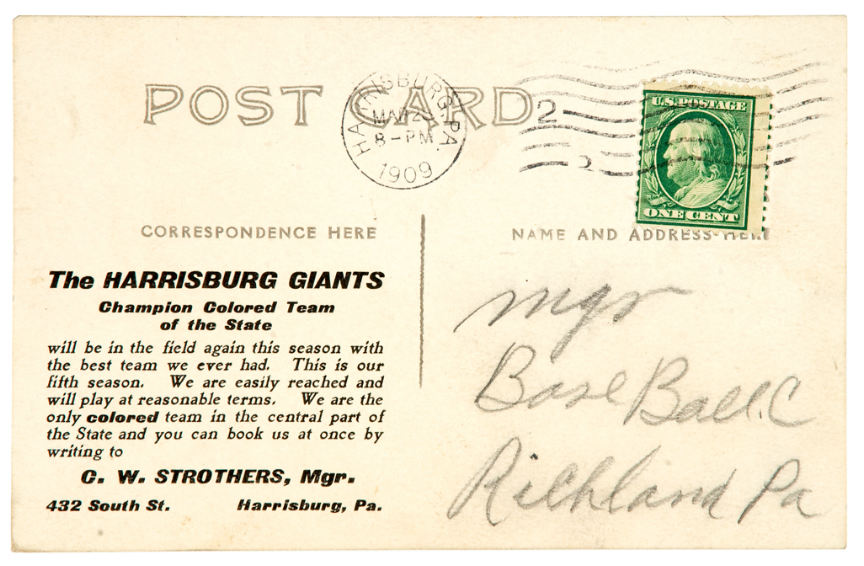 POST CARD
HARRISBURG, PA.
MAR
8-PM
1909
2
U.S. POSTAGE
ONE CENT
CORRESPONDENCE HERE
NAME AND ADDRESS HERE
The HARRISBURG GIANTS
Champion Colored Team
of the State
will be in the field again this season with
the best team we ever had. This is our
fifth season. We are easily reached and
will play at reasonable terms. We are the
only colored team in the central part of
the State and you can book us at once by
writing to
C. W. STROTHERS, Mgr.
432 South St. Harrisburg, Pa.
Mgr
Base Ball.C
Richland Pa